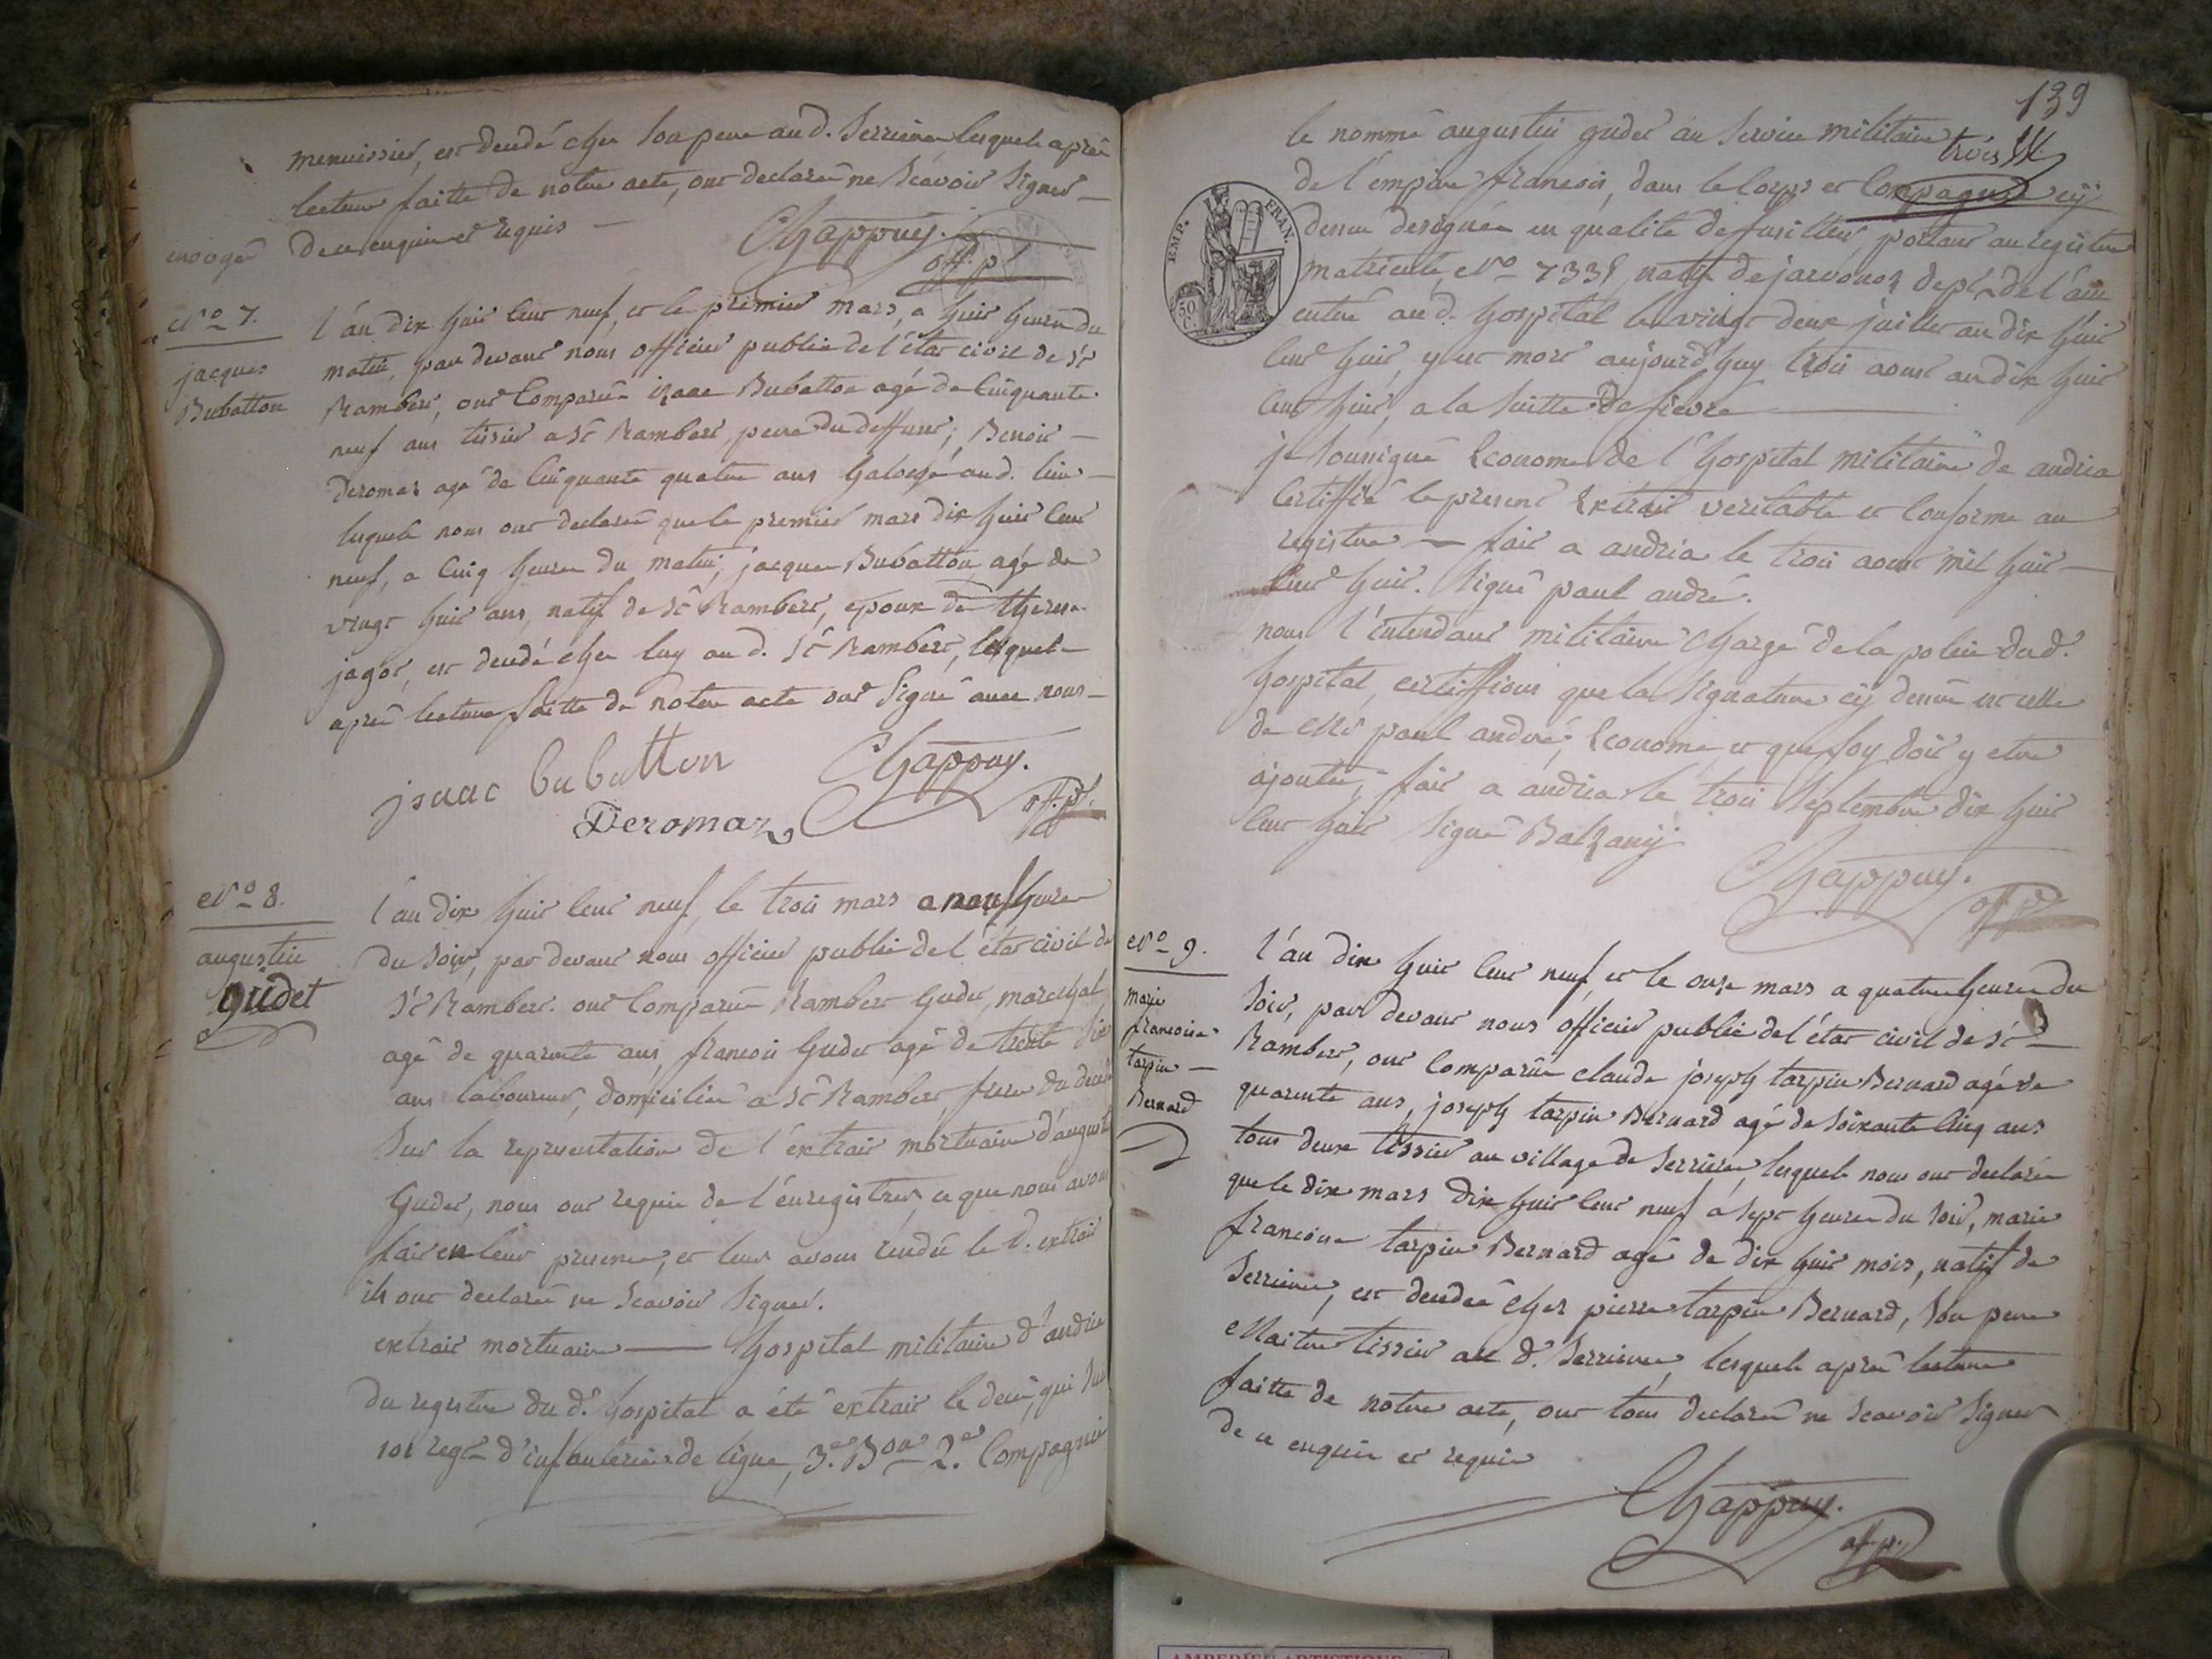 menuissier, est decedé chez son pere aud. Serriere lesquels aprés
lecture faitte de notre acte, ont declarés ne scavoir signer
envoyé
de ce enquis et requis
Chappuy.
off. p.
N.o 7.
jacques
Bubatton
l'an dix huit cent neuf, et le premier mars, a huit heures du
matin, par devant nous officier public de l'état civil de St
Rambert, ont comparûs isaac Bubatton agé de cinquante
neuf ans tissier a St Rambert pere du deffunt; Benoit
Deromas agé de cinquante quatre ans aud. lieu
lesquels nous ont declarés que le premier mars dix huit cent
neuf, a cinq heures du matin, jacques Bubatton, agé de
vingt huit ans, natif de St Rambert, epoux de therese
jagot, est decedé chez luy aud. St Rambert, lesquels
aprés lecture faitte de notre acte ont signé avec nous
jsaac bubatton
Chappuy.
Deromaz
off. p.
N.o 8.
augustin
gudet
l'an dix huit cent neuf, le trois mars a neuf heures
du soir, par devant nous officier public de l'état civil de
St Rambert. ont comparûs Rambert Gudet, marechal
agé de quarente ans, francois Gudet agé de trente six
ans laboureur, domiciliés a St Rambert, frere du decedé
sur la representation de l'extrait mortuaire d'augustin
Gudet, nous ont requis de l'enregistrer, ce que nous avons
fait en leur presence, et leur avons rendû le d. extrait
ils ont declarés ne scavoir signer.
extrait mortuaire — hospital militaire d'andria
du registre du d. hospital a été extrait le decés, qui suit
101 regt d'infanterie de ligne, 3.e Bon 2.e Compagnie
139
le nommé augustin gudet au service militaire
trois
de l'empire francois, dans le corps et compagnie cy
EMP. FRAN.
50 C.
dessus designée en qualité de fusillier portant au registre
matricule, N.o 7338, natif de jarvonoz dept de l'ain
entré aud. hospital le vingt deux juillet an dix huit
cent huit, y est mort aujourd'huy trois aoust an dix huit
cent huit, a la suitte de fievre
je soussigné Econome de l'hospital militaire de andria
certiffie le present Extrait veritable et conforme au
registre — fait a andria le trois aoust mil huit
cent huit. signé paul andré.
nous l'intendant militaire chargé de la police dud.
hospital, certiffions que la signature cy dessus est celle
de Mr paul andré, Econome, et que foy doit y etre
ajoutée, fait a andria le trois septembre dix huit
cent huit signé Balzanÿ
Chappuy.
off. p.
N.o 9.
marie
francoise
tarpin
Bernard
l'an dix huit cent neuf, et le onze mars a quatre heures du
soir, par devant nous officier public de l'état civil de St
Rambert, ont comparûs claude joseph tarpin Bernard agé de
quarente ans, joseph tarpin Bernard agé de soixante cinq ans
tous deux tissier au village de Serriere, lesquels nous ont declarés
que le dix mars dix huit cent neuf a sept heures du soir, marie
francoise tarpin Bernard agé de dix huit mois, natif de
Serriere, est decedée chez pierre tarpin Bernard, son pere
Maitre tissier au d. Serriere, lesquels aprés lecture
faitte de notre acte, ont tous declarés ne scavoir signer
de ce enquis et requis
Chappuy.
off. p.